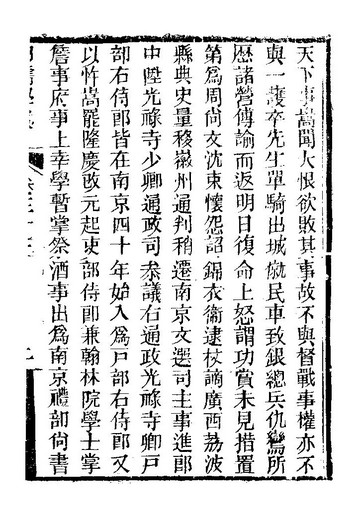 天下事嵩聞大恨欲敗其事故不與督戰事權亦不
與一護卒先生單騎出城僦民車致銀總兵仇鸞所
歷諸營傳諭而返明日復命上怒謂功賞未見措置
第為周尚文沈束懷怨詔錦衣衞逮杖謫廣西荔波
縣典史量移徽州通判稍遷南京文選司主事進郎
中陞光祿寺少卿通政司叅議右通政光祿寺卿戶
部右侍郎皆在南京四十年始入為戶部右侍郎又
以忤嵩罷隆慶改元起吏部侍郎兼翰林院學士掌
詹事府事上幸學暫掌祭酒事出為南京禮部尚書